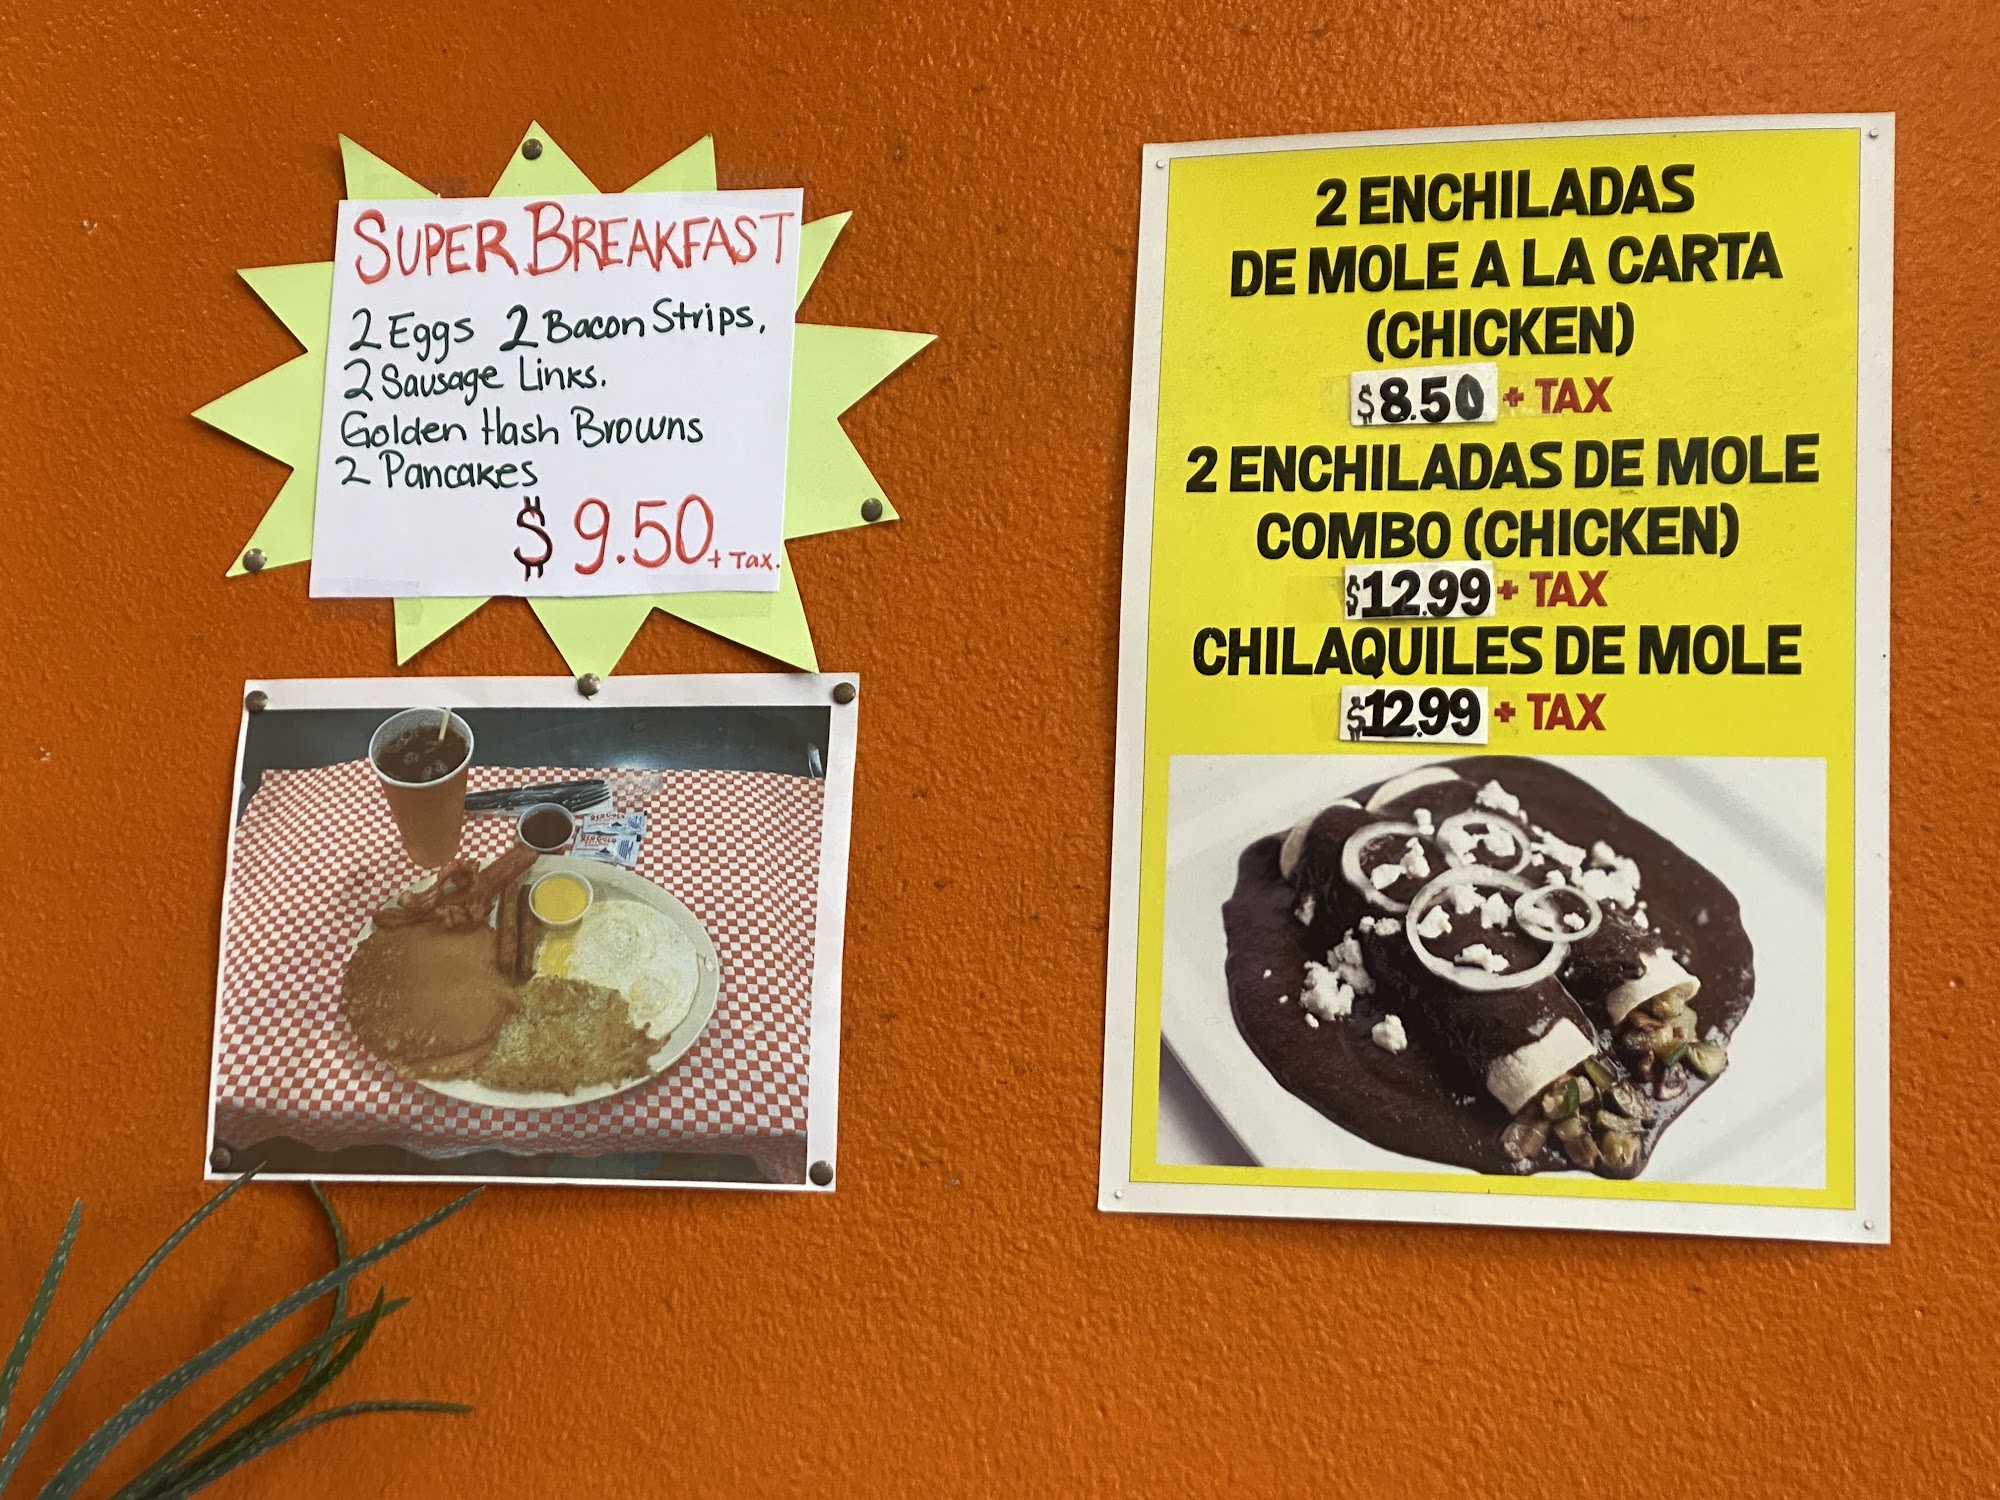 SUPER BREAKFAST
2 Eggs 2 Bacon Strips,
2 Sausage Links.
Golden Hash Browns
2 Pancakes
$ 9.50 + Tax.
2 ENCHILADAS
DE MOLE A LA CARTA
(CHICKEN)
$8.50 + TAX
2 ENCHILADAS DE MOLE
COMBO (CHICKEN)
$12.99 + TAX
CHILAQUILES DE MOLE
$12.99 + TAX